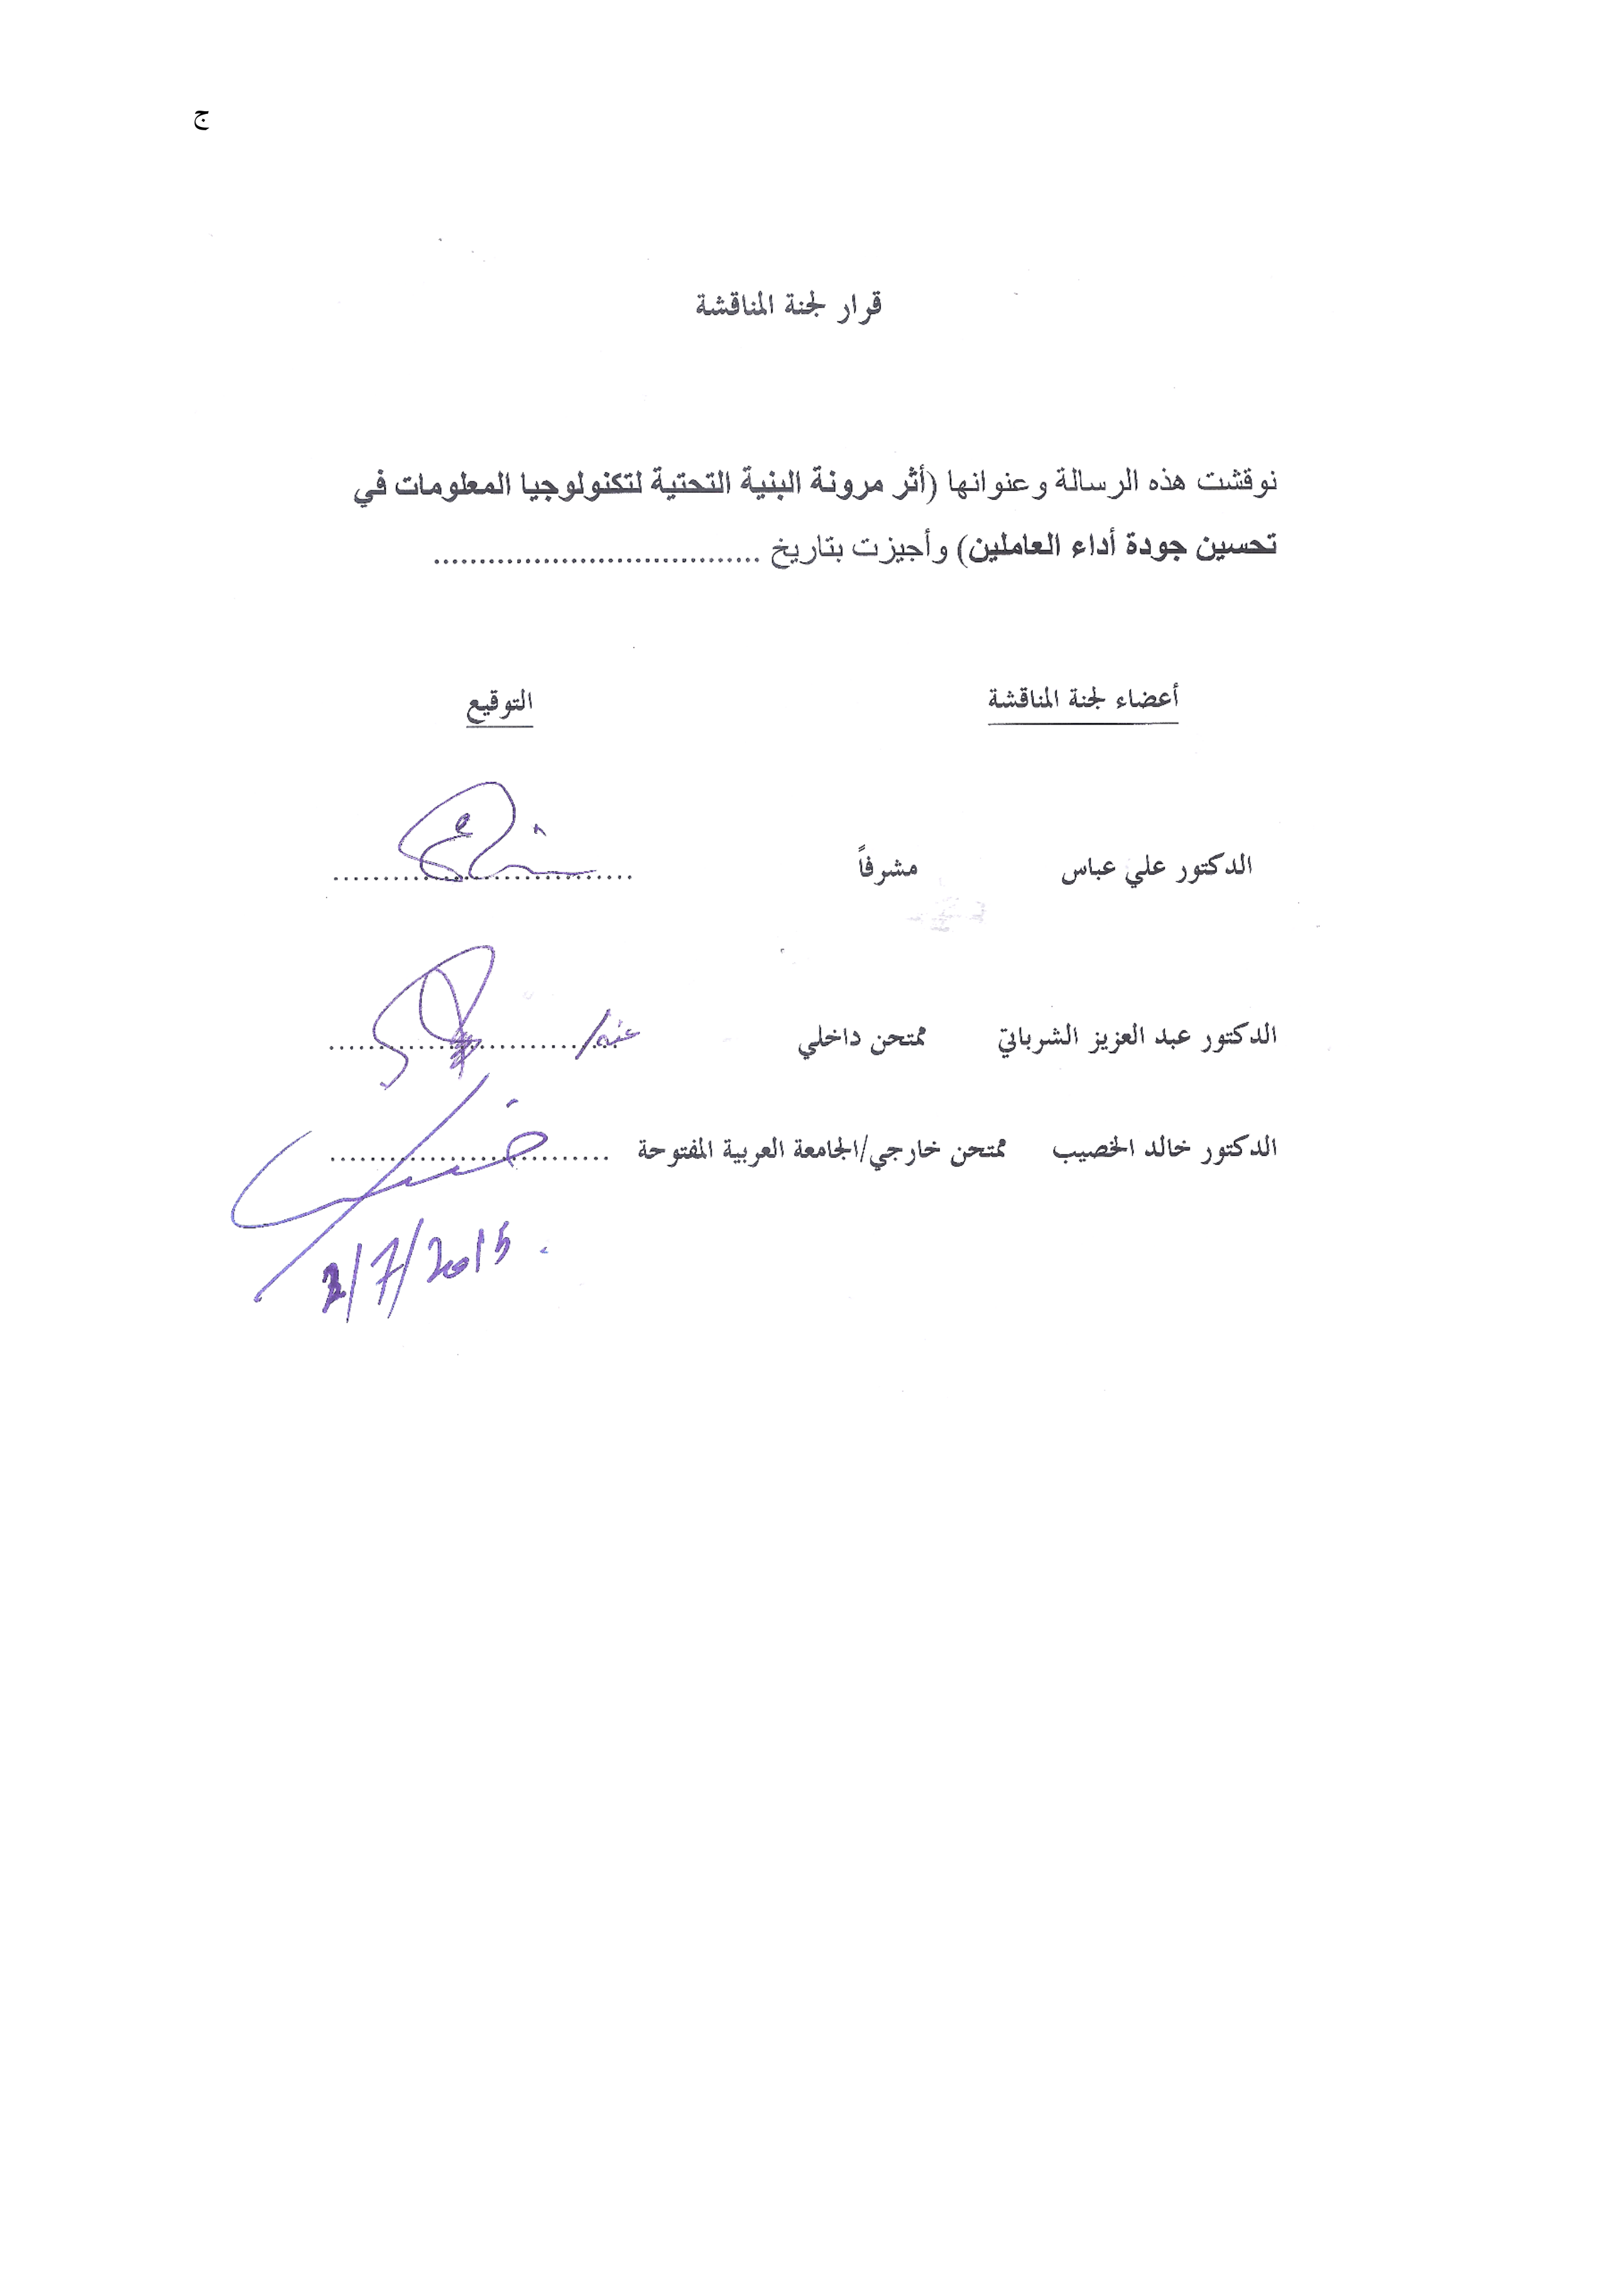 ج
قرار لجنة المناقشة
نوقشت هذه الرسالة وعنوانها (أثر مرونة البنية التحتية لتكنولوجيا المعلومات في
تحسين جودة أداء العاملين) وأجيزت بتاريخ ....................................
أعضاء لجنة المناقشة التوقيع
الدكتور علي عباس مشرفاً ...............................
الدكتور عبد العزيز الشرباتي ممتحن داخلي عنه/ ..............................
الدكتور خالد الخصيب ممتحن خارجي/الجامعة العربية المفتوحة .............................
/7/2015